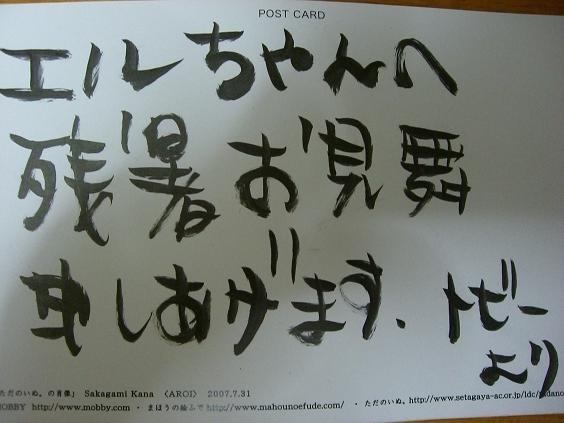 POST CARD
エルちゃんへ
残暑お見舞
申しあげます.トビー
より
ただのいぬ。の肖像」 Sakagami Kana 〈AROI〉 2007.7.31
MOBBY http://www.mobby.com ・ まほうの絵ふで http://www.mahounoefude.com/ ・ ただのいぬ。http://www.setagaya-ac.or.jp/ldc/